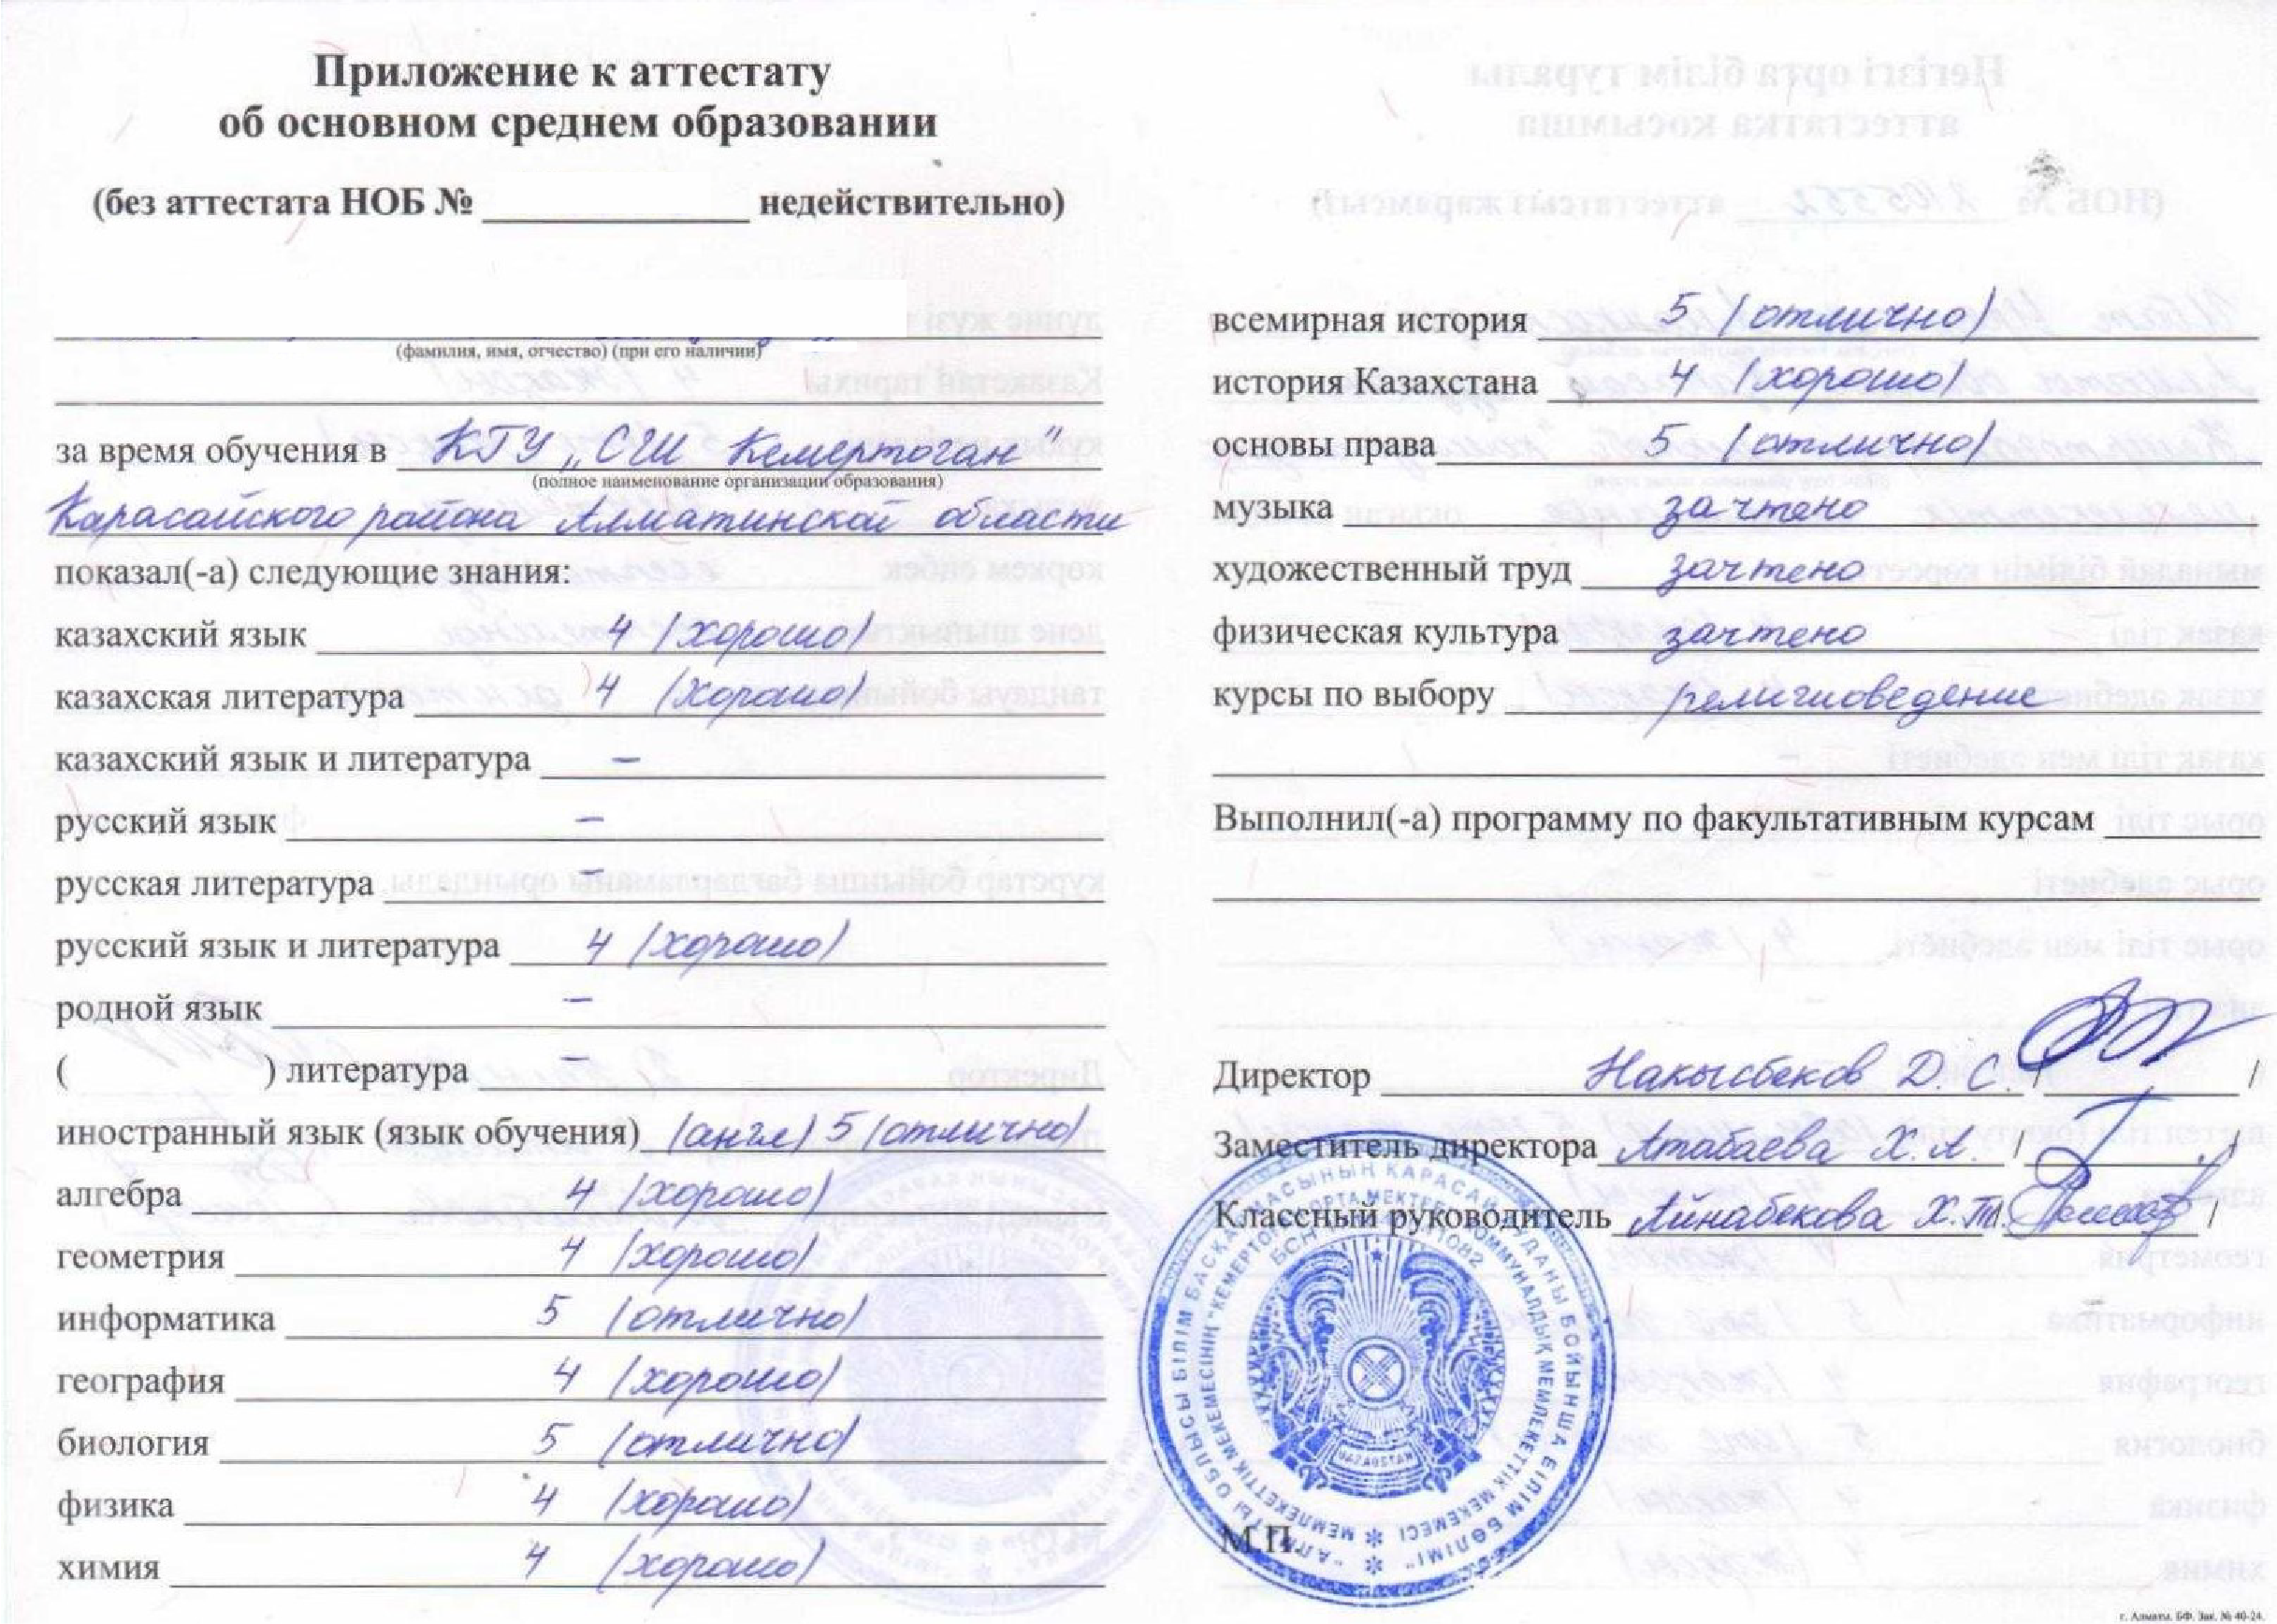 Приложение к аттестату
об основном среднем образовании
(без аттестата НОБ № недействительно)
(фамилия, имя, отчество) (при его наличии)
за время обучения в КГУ „СШ Кемертоган"
(полное наименование организации образования)
Карасайского района Алматинской области
показал(-а) следующие знания:
казахский язык 4 (хорошо)
казахская литература 4 (хорошо)
казахский язык и литература –
русский язык –
русская литература –
русский язык и литература 4 (хорошо)
родной язык –
( ) литература –
иностранный язык (язык обучения) (англ) 5 (отлично)
алгебра 4 (хорошо)
геометрия 4 (хорошо)
информатика 5 (отлично)
география 4 (хорошо)
биология 5 (отлично)
физика 4 (хорошо)
химия 4 (хорошо)
всемирная история 5 (отлично)
история Казахстана 4 (хорошо)
основы права 5 (отлично)
музыка зачтено
художественный труд зачтено
физическая культура зачтено
курсы по выбору религиоведение
Выполнил(-а) программу по факультативным курсам
Директор Накысбеков Д. С. / /
Заместитель директора Атабаева Х. А. / /
Классный руководитель Айнабекова Х.Т. / /
"АЛМАТЫ ОБЛЫСЫ БІЛІМ БАСҚАРМАСЫНЫҢ ҚАРАСАЙ АУДАНЫ БОЙЫНША БІЛІМ БӨЛІМІ"
МЕМЛЕКЕТТІК МЕКЕМЕСІНІҢ "КЕМЕРТОҒАН ОРТА МЕКТЕБІ" КОММУНАЛДЫҚ МЕМЛЕКЕТТІК МЕКЕМЕСІ
БСН
QAZAQSTAN
М.П.
г. Алматы. БФ. Зак. № 40-24.